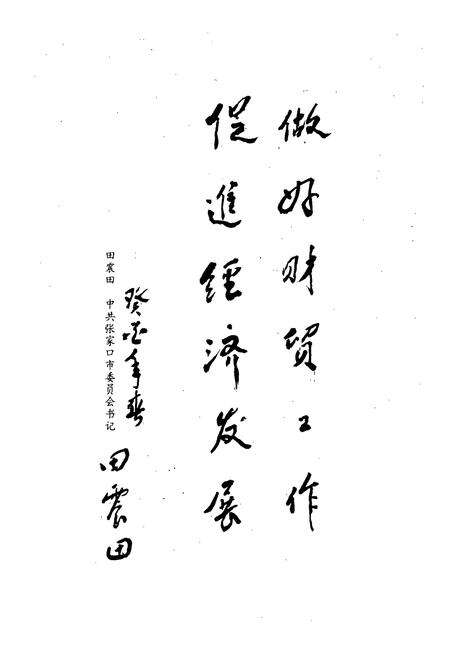 做好财貿工作
促進經济发展
癸酉年春
田震田
田震田 中共张家口市委员会书记